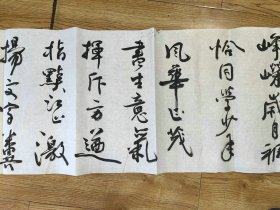 崢嶸歲月稠
恰同學少年
風華正茂
書生意氣
揮斥方遒
指點江山激
揚文字糞